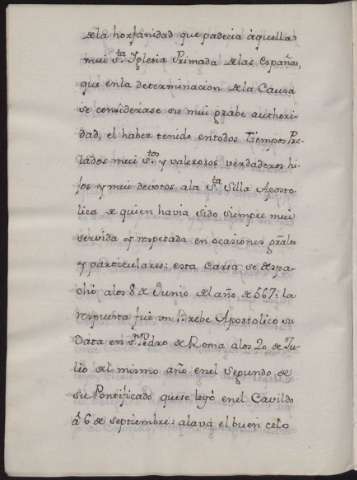 de la horfanidad que padecia aquella
mui S.ta Iglesia Primada de las Españas,
que en la determinacion de la Causa
se considerase su mui grabe authori-
dad, el haber tenido en todos tiempos Pre-
lados mui S.tos y valerosos verdaderos hi-
jos y mui devotos a la S.ta Silla Aposto-
lica de quien havia sido siempre mui
servida y respetada en ocasiones grāles
y particulares: esta Carta se despa-
chó a los 8 de Junio del año de 567: la
respuesta fué un Brebe Apostolico su
Data en S. Pedro de Roma a los 20 de Ju-
lio del mismo año en el segundo de
su Pontificado que se leyó en el Cavildo
á 6 de septiembre: alava el buen celo